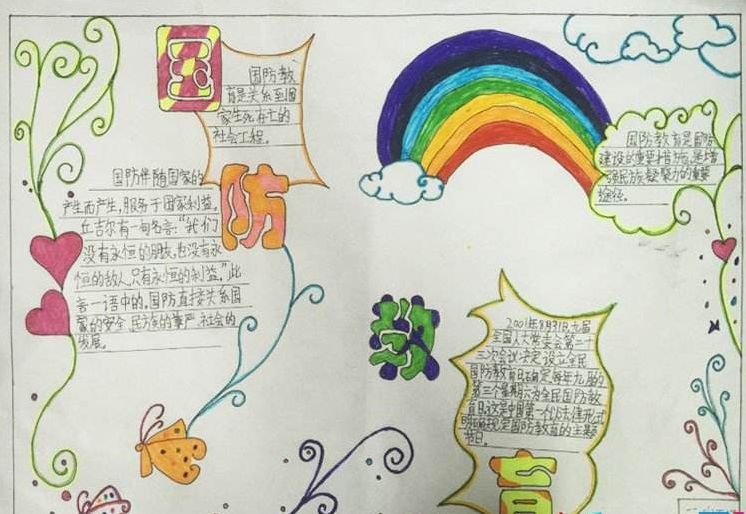 国
国防教
育是关系到国
家生死存亡的
社会工程。
防
国防伴随国家的
产生而产生，服务于国家利益。
丘吉尔有一句名言："我们
没有永恒的朋友，也没有永
恒的敌人，只有永恒的利益，"此
言一语中的，国防直接关系国
家的安全、民族的尊严、社会的
发展。
国防教育是国防
建设的重要措施，是增
强民族凝聚力的重要
途径。
教
2001年8月31日，九届
全国人大常委会第二十
三次会议决定，设立全民
国防教育日，确定每年九月的
第三个星期六为全民国防教
育日，这是中国第一个以法律形式
国防教育的主题
节日。
育